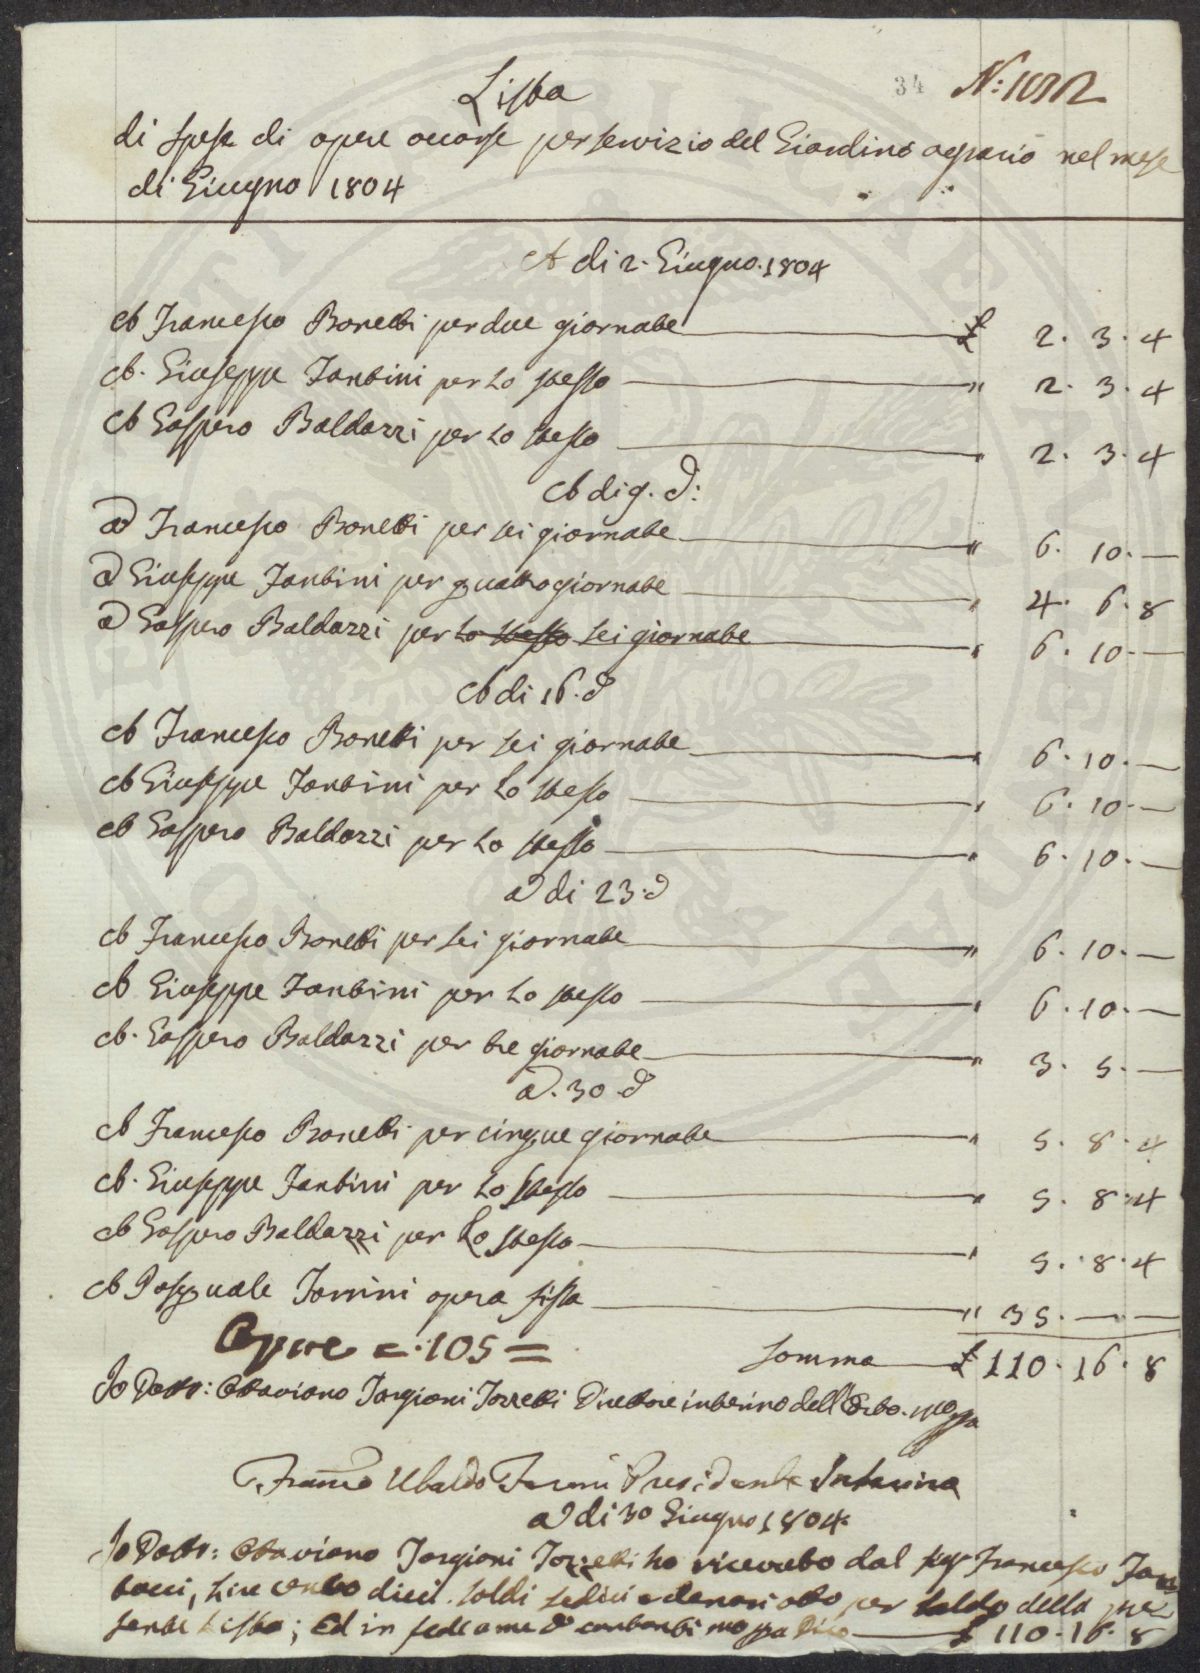 34 N: 1032
Lista
di spese di opere occorse per servizio del Giardino agrario nel mese
di Giugno 1804
A di 2. Giugno. 1804
A Francesco Bonetti per due giornate £ 2. 3. 4
A. Giuseppe Tantini per lo stesso " 2. 3. 4
A Gaspero Baldazzi per lo stesso " 2. 3. 4
A di 9. d:
A Francesco Bonetti per sei giornate " 6. 10. —
A Giuseppe Tantini per quattro giornate " 4. 6. 8
A Gaspero Baldazzi per lo stesso sei giornate " 6. 10. —
A di 16. d
A Francesco Bonetti per sei giornate " 6. 10. —
A Giuseppe Tantini per lo stesso " 6. 10. —
A Gaspero Baldazzi per lo stesso " 6. 10. —
A di 23. d
A Francesco Bonetti per sei giornate " 6. 10. —
A Giuseppe Tantini per lo stesso " 6. 10. —
A. Gaspero Baldazzi per tre giornate " 3. 5. —
A. 30. d
A Francesco Bonetti per cinque giornate " 5. 8. 4
A. Giuseppe Tantini per lo stesso " 5. 8. 4
A Gaspero Baldazzi per lo stesso " 5. 8. 4
A Pasquale Tonini opera fissa " 35. — —
Opere =. 105 = Somma £ 110. 16. 8
Io Dott: Ottaviano Targioni Tozzetti Direttore interino dell'Orto.
Ubaldo Presidente Interino
A di 30 Giugno 1804.
Io Dott: Ottaviano Targioni Tozzetti ho ricevuto dal Sig Francesco
lire cento dieci. soldi sedici e denari otto per saldo della pre
sente Lista; Ed in fede a me d contanti mo ppa Dico £ 110. 16. 8